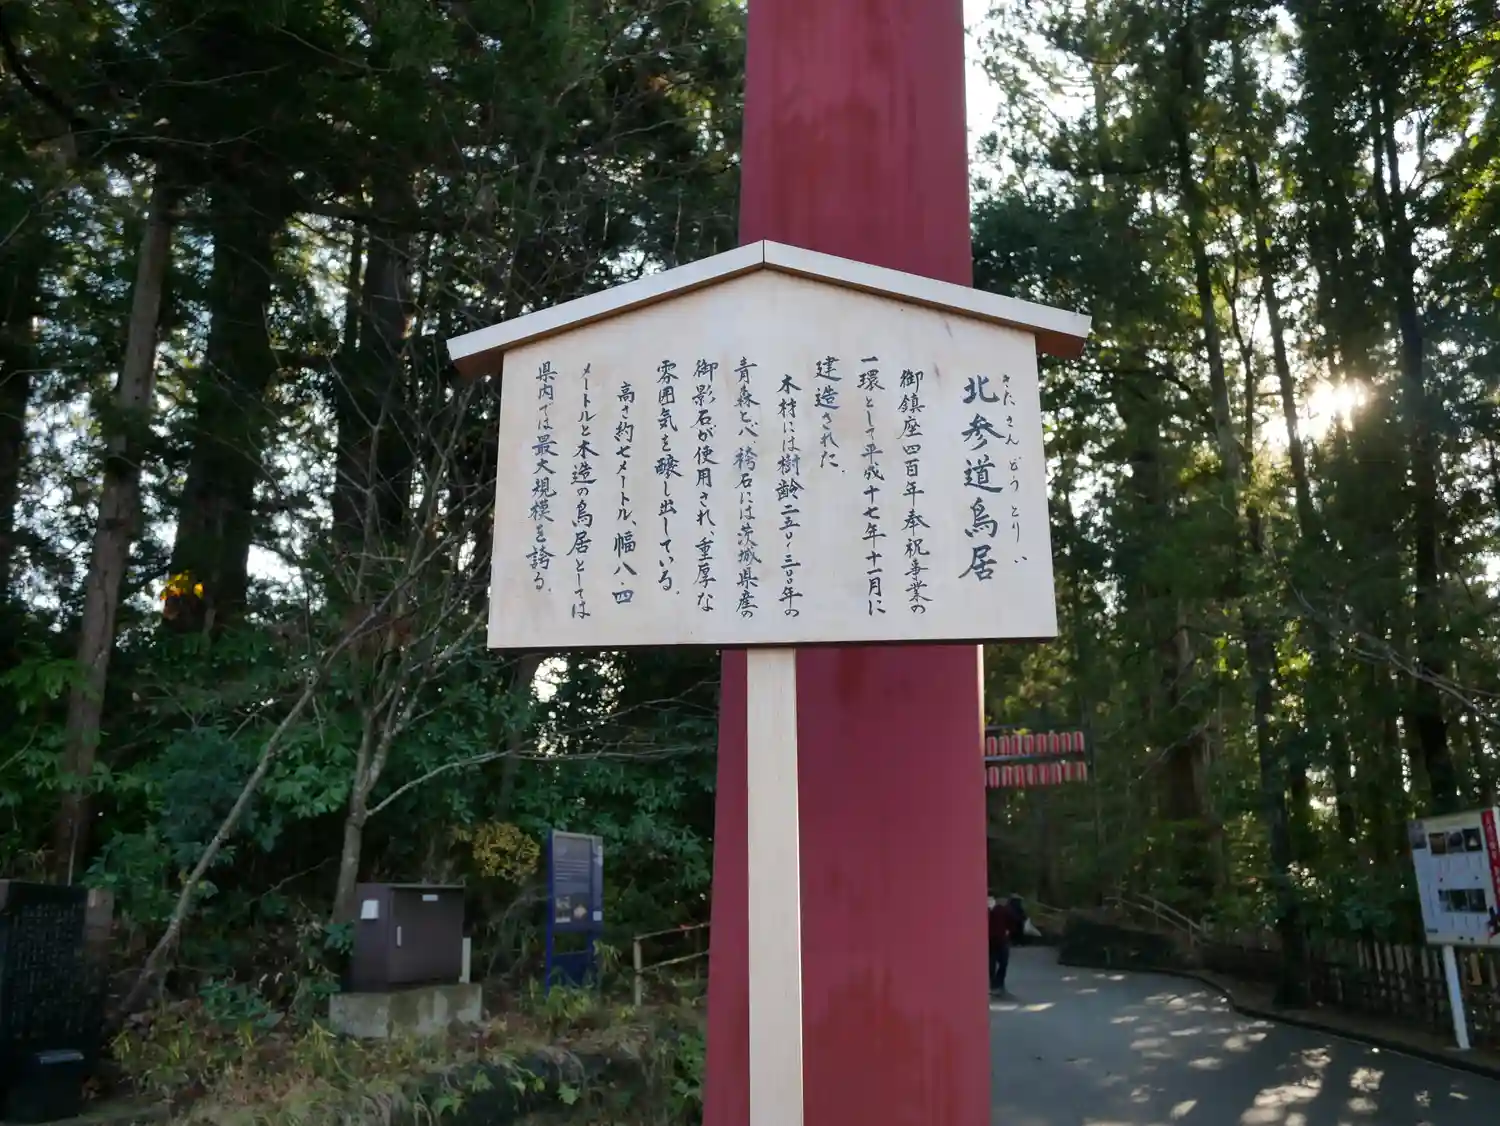 きたさんどうとりい
北参道鳥居
御鎮座四百年奉祝事業の
一環として平成十七年十一月に
建造された。
木材には樹齢二五〇・三〇〇年の
青森ヒバ、袴石には茨城県産の
御影石が使用され、重厚な
雰囲気を醸し出している。
高さ約七メートル、幅八・四
メートルと木造の鳥居としては
県内では最大規模を誇る。